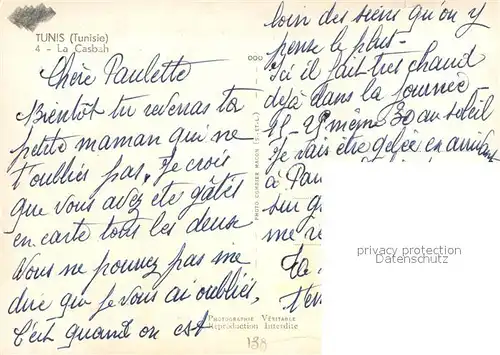 TUNIS (Tunisie)
4 - La Casbah
Chère Paulette
Bientôt tu reverras ta
petite maman qui ne
t'oublies pas. Je crois
que vous avez été gâtés
en carte tous les deux
Vous ne pouvez pas me
dire que je vous ai oubliés,
C'est quand on est
loin des siens qu'on y
pense le plus -
Ici il fait très chaud
déjà dans la journée
25 - 28 même 30 au soleil
Je vais être gelée en arrivant
à Pa
sur g
me re
Ta
t'em
PHOTO COMBIER MACON
PHOTOGRAPHIE VÉRITABLE
Reproduction Interdite
138
privacy protection
Datenschutz